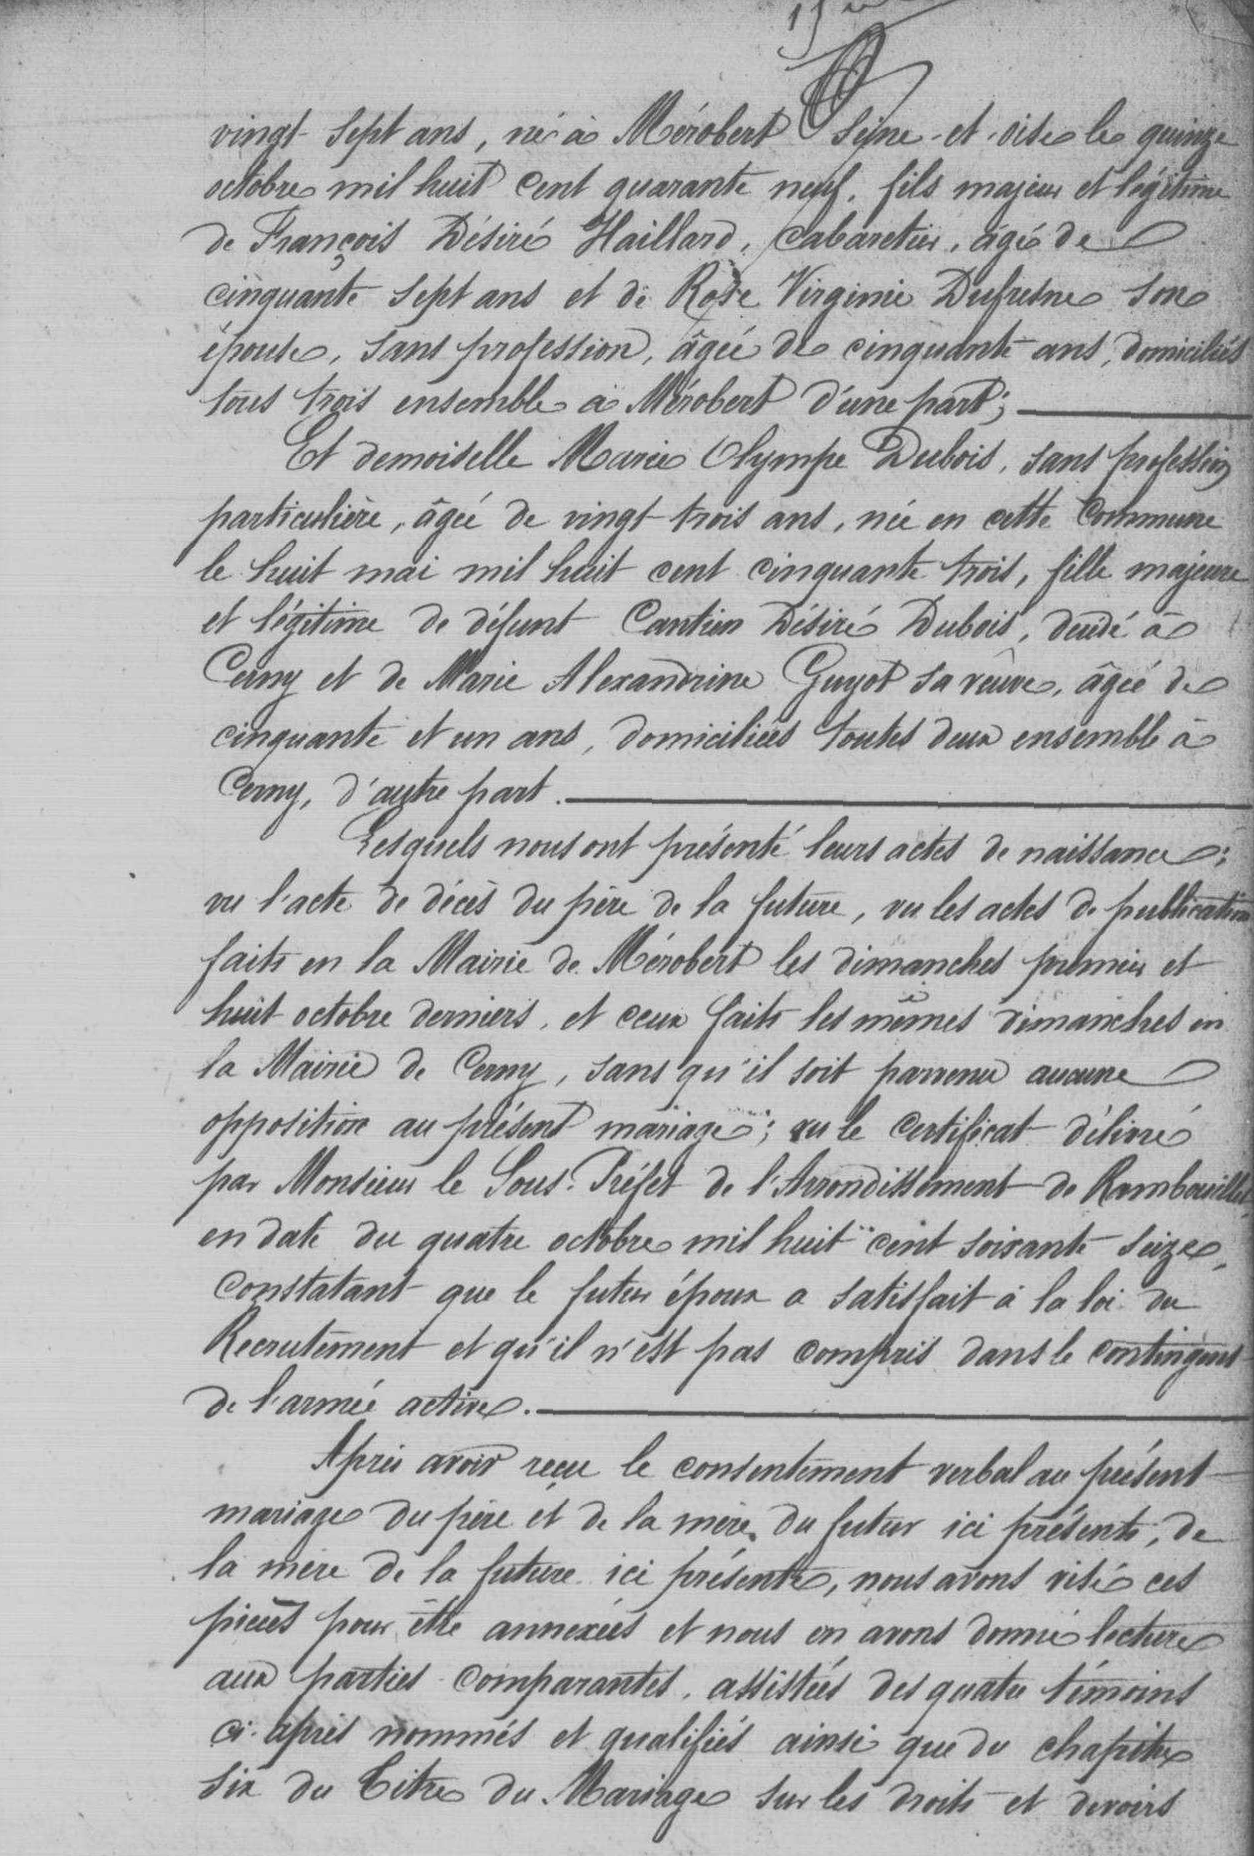 vingt-sept ans, né à Mérobert Seine-et-oise le quinze
octobre mil huit cent quarante neuf, fils majeur et légitime
de François Désiré Haillard, cabaretier, âgé de
cinquante sept ans et de Rose Virginie Dufresne son
épouse, sans profession, âgée de cinquante ans, domiciliés
tous trois ensemble à Mérobert d'une part;
Et demoiselle Marie Olympe Dubois, sans profession
particulière, âgée de vingt-trois ans, née en cette Commune
le huit mai mil huit cent cinquante trois, fille majeure
et légitime de défunt Cantien Désiré Dubois, décédé à
Cerny et de Marie Alexandrine Guyot sa veuve, âgée de
cinquante et un ans, domiciliées toutes deux ensemble à
Cerny, d'autre part.
Lesquels nous ont présenté leurs actes de naissance;
vu l'acte de décès du père de la future, vu les actes de publication
faits en la Mairie de Mérobert les dimanches premier et
huit octobre derniers, et ceux faits les mêmes dimanches en
la Mairie de Cerny, sans qu'il soit parvenu aucune
opposition au présent mariage; vu le certificat délivré
par Monsieur le Sous-Préfet de l'Arrondissement de Rambouillet
en date du quatre octobre mil huit cent soixante-seize,
constatant que le futur époux a satisfait à la loi du
Recrutement et qu'il n'est pas compris dans le contingent
de l'armée active.
Après avoir reçu le consentement verbal au présent
mariage du père et de la mère du futur ici présents, de
la mère de la future ici présente, nous avons visé ces
pièces pour être annexées et nous en avons donné lecture
aux parties comparantes, assistées des quatre témoins
ci-après nommés et qualifiés ainsi que du chapitre
six du Titre du Mariage sur les droits et devoirs